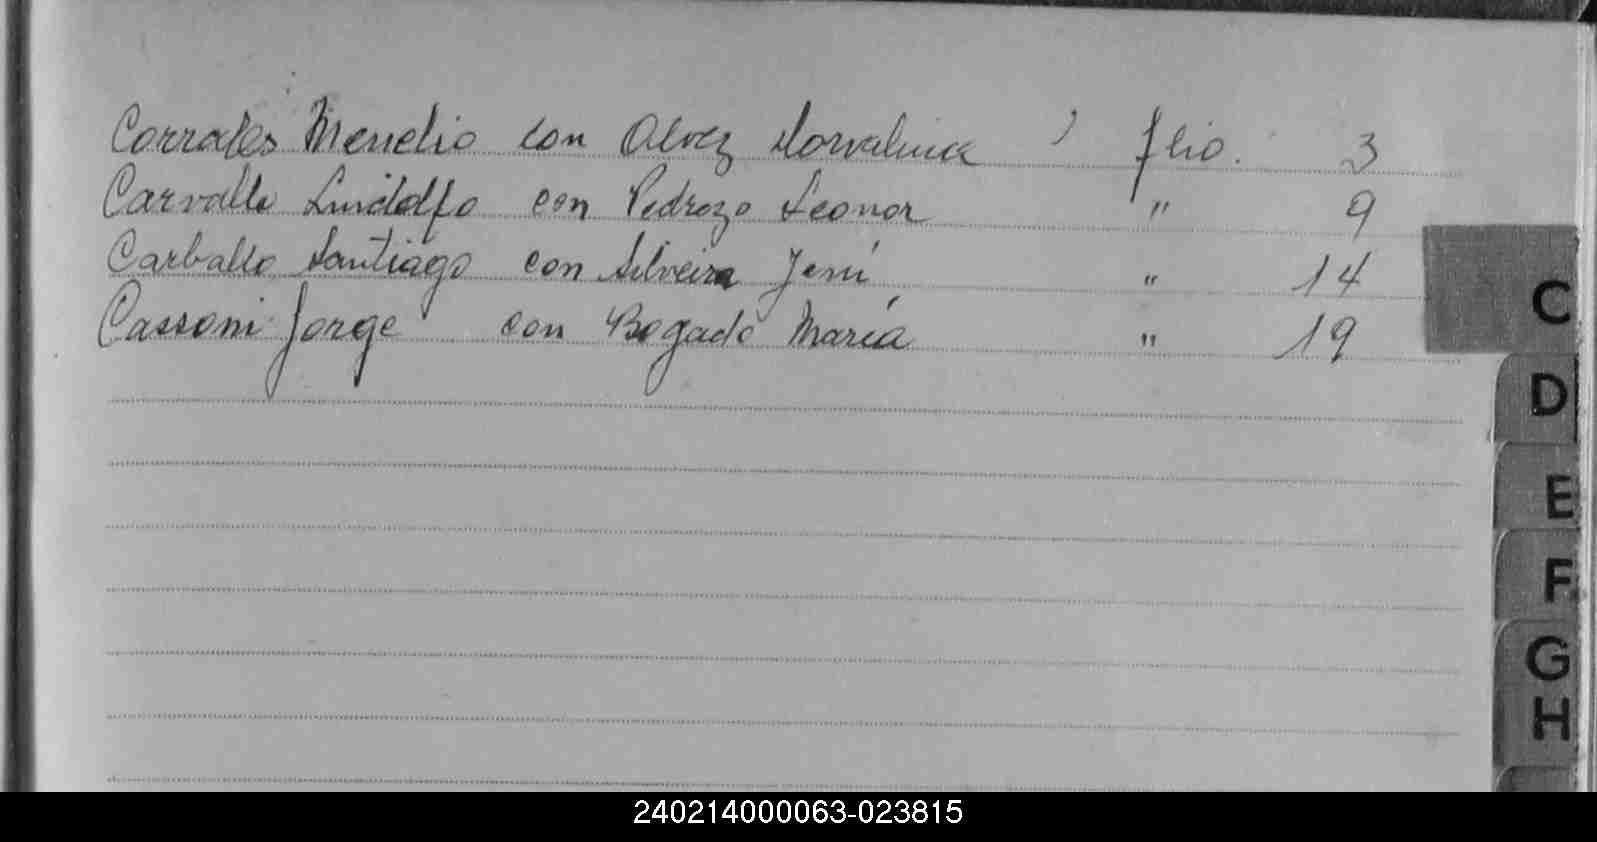 Corrales Menelio con Alvez Dorvalina flio. 3
Carvallo Lindolfo con Pedrozo Leonor " 9
Carballo Santiago con Silveira Jení " 14
Cassoni Jorge con Bogado María " 19
C
D
E
F
G
H
240214000063-023815